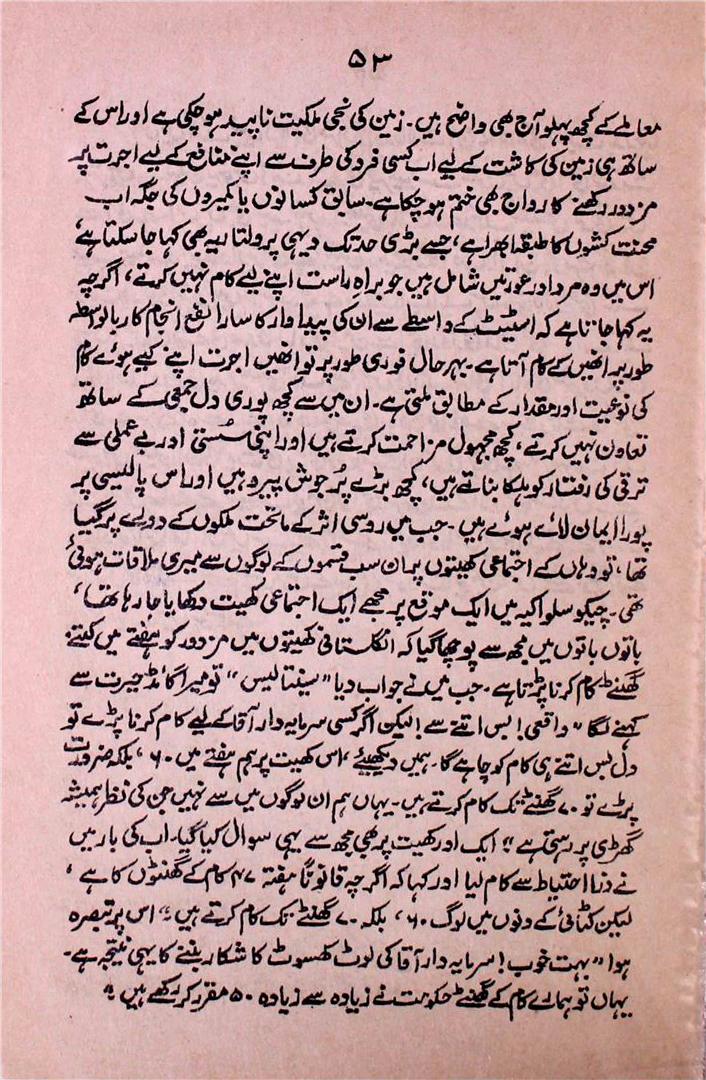 ۵۳
معاملے کے کچھ پہلو آج بھی واضح ہیں۔ زمین کی نجی ملکیت ناپید ہوچکی ہے اور اس کے
ساتھ ہی زمین کی کاشت کے لیے اب کسی فرد کی طرف سے اپنے منافع کے لیے اجرت پر
مزدور رکھنے کا رواج بھی ختم ہوچکا ہے۔ سابق کسانوں یا کمیروں کی جگہ اب
محنت کشوں کا طبقہ ابھرا ہے، جسے بڑی حد تک دیہی پرولتاریہ بھی کہا جاسکتا ہے،
اس میں وہ مرد اور عورتیں شامل ہیں جو براہِ راست اپنے لیے کام نہیں کرتے، اگرچہ
یہ کہا جاتا ہے کہ اسٹیٹ کے واسطے سے ان کی پیداوار کا سارا نفع انجام کار بالواسطہ
طور پر انھیں کے کام آتا ہے۔ بہرحال فوری طور پر تو انھیں اجرت اپنے کیے ہوئے کام
کی نوعیت اور مقدار کے مطابق ملتی ہے۔ ان میں سے کچھ پوری دل جمعی کے ساتھ
تعاون نہیں کرتے، کچھ مجہول مزاحمت کرتے ہیں اور اپنی سُستی اور بے عملی سے
ترقی کی رفتار کو ہلکا بناتے ہیں، کچھ بڑے پُر جوش پیرو ہیں اور اس پالیسی پر
پورا ایمان لائے ہوئے ہیں۔ جب میں روسی اثر کے ماتحت ملکوں کے دورے پر گیا
تھا، تو وہاں کے اجتماعی کھیتوں پر ان سب قسموں کے لوگوں سے میری ملاقات ہوئی
تھی۔ چیکوسلواکیہ میں ایک موقع پر مجھے ایک اجتماعی کھیت دکھایا جا رہا تھا،
باتوں باتوں میں مجھ سے پوچھا گیا کہ انگلستانی کھیتوں میں مزدور کو ہفتے میں کتنے
گھنٹے کام کرنا پڑتا ہے۔ جب میں نے جواب دیا "سینتالیس" تو میرا گائڈ حیرت سے
کہنے لگا "واقعی! بس اتنے سے! لیکن اگر کسی سرمایہ دار آقا کے لیے کام کرنا پڑے تو
دل بس اتنے ہی کام کو چاہے گا۔ ہمیں دیکھیئے، اس کھیت پر ہم ہفتے میں ۶۰، بلکہ ضرورت
پڑے تو ۷۰ گھنٹے تک کام کرتے ہیں۔ یہاں ہم ان لوگوں میں سے نہیں جن کی نظر ہمیشہ
گھڑی پر رہتی ہے" ایک اور کھیت پر بھی مجھ سے یہی سوال کیا گیا۔ اب کی بار میں
نے ذرا احتیاط سے کام لیا اور کہا کہ اگرچہ قانوناً ہفتہ ۴۷ کام کے گھنٹوں کا ہے،
لیکن کٹائی کے دنوں میں لوگ ۶۰، بلکہ ۷۰ گھنٹے تک کام کرتے ہیں" اس پر تبصرہ
ہوا "بہت خوب! سرمایہ دار آقا کی لوٹ کھسوٹ کا شکار بننے کا یہی نتیجہ ہے۔
یہاں تو ہمارے کام کے گھنٹے حکومت نے زیادہ سے زیادہ ۵۰ مقرر کر رکھے ہیں"